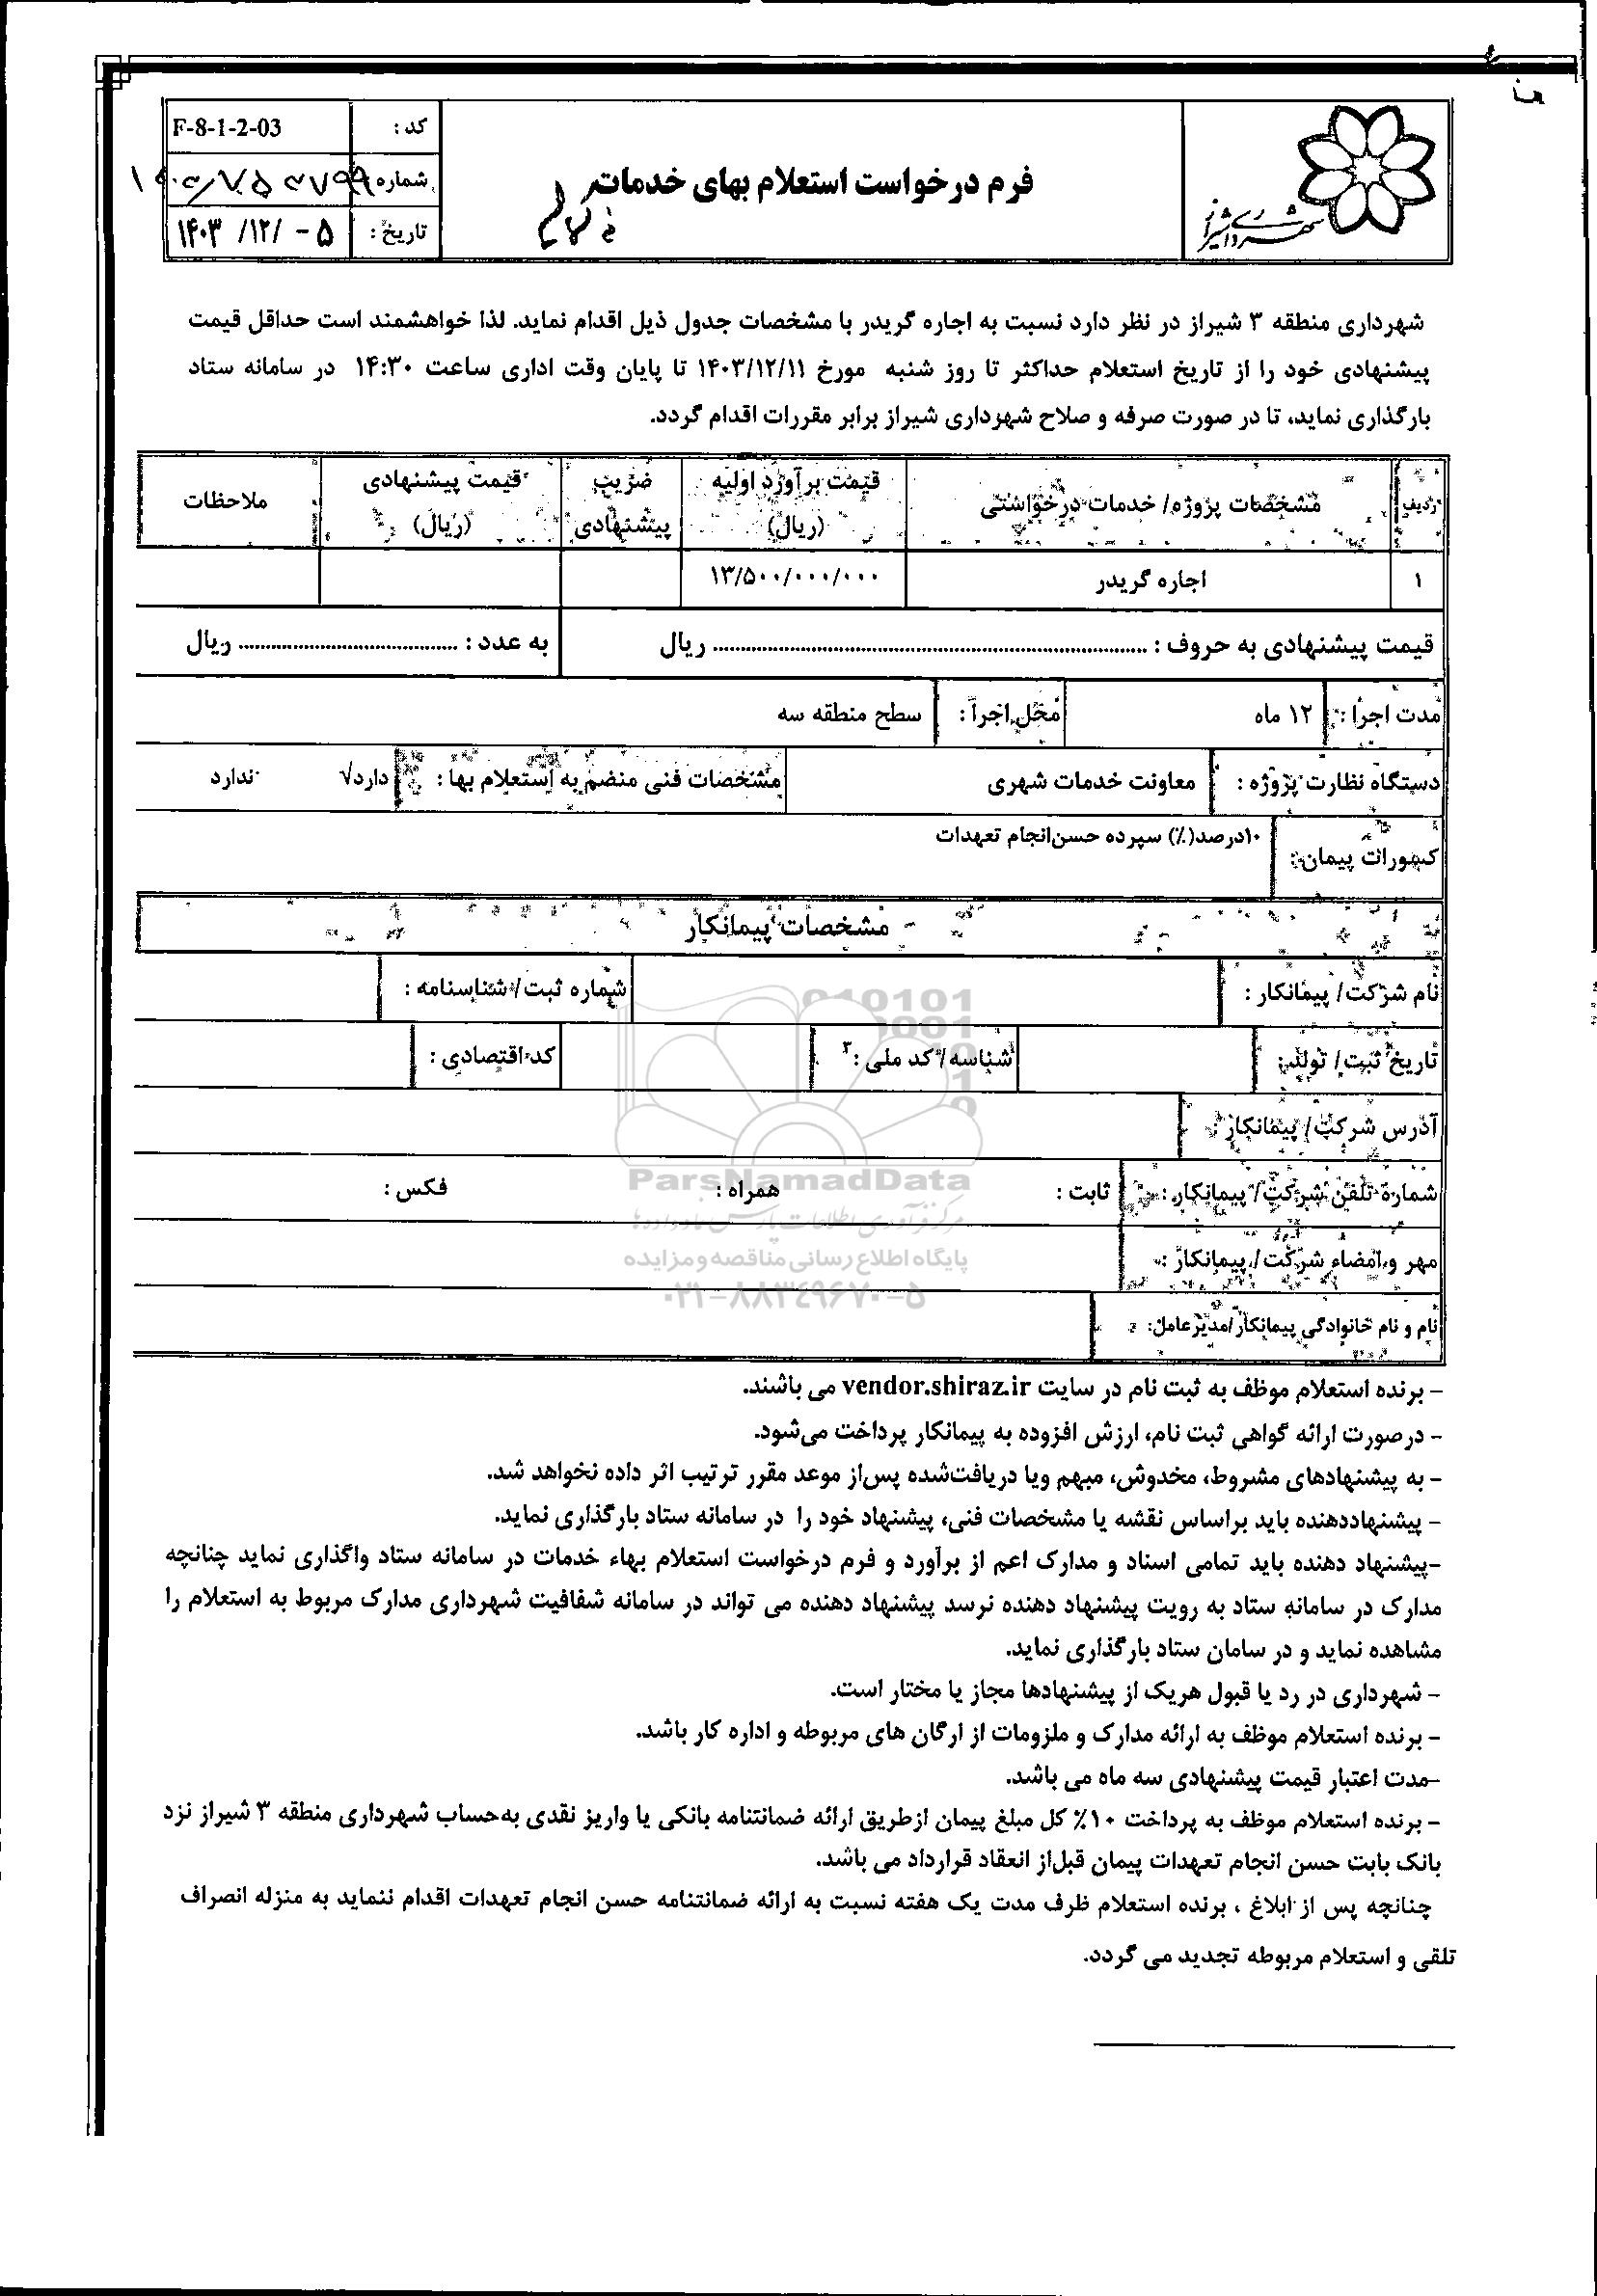 شهرداری شیراز
فرم درخواست استعلام بهای خدمات
کد : F-8-1-2-03
شماره
تاریخ : ۱۴۰۳/۱۲/-۵
شهرداری منطقه ۳ شیراز در نظر دارد نسبت به اجاره گریدر با مشخصات جدول ذیل اقدام نماید. لذا خواهشمند است حداقل قیمت
پیشنهادی خود را از تاریخ استعلام حداکثر تا روز شنبه مورخ ۱۴۰۳/۱۲/۱۱ تا پایان وقت اداری ساعت ۱۴:۳۰ در سامانه ستاد
بارگذاری نماید، تا در صورت صرفه و صلاح شهرداری شیراز برابر مقررات اقدام گردد.
ردیف مشخصات پروژه/ خدمات درخواستی قیمت برآورد اولیه (ریال) ضریب پیشنهادی قیمت پیشنهادی (ریال) ملاحظات
۱ اجاره گریدر ۱۳/۵۰۰/۰۰۰/۰۰۰
قیمت پیشنهادی به حروف : .......................................................................... ریال به عدد : ..................................... ریال
مدت اجرا : ۱۲ ماه محل اجرا : سطح منطقه سه
دستگاه نظارت پروژه : معاونت خدمات شهری مشخصات فنی منضم به استعلام بها : دارد√ ندارد
کسورات پیمان: ۱۰درصد(٪) سپرده حسن‌انجام تعهدات
مشخصات پیمانکار
نام شرکت/ پیمانکار : شماره ثبت/ شناسنامه :
تاریخ ثبت/ تولد: شناسه/ کد ملی : کد اقتصادی :
آدرس شرکت/ پیمانکار :
شماره تلفن شرکت/ پیمانکار : ثابت : همراه : فکس :
مهر و امضاء شرکت/ پیمانکار :
نام و نام خانوادگی پیمانکار/مدیرعامل:
ParsNamadData
مرکز فرآوری اطلاعات پارس نماد داده‌ها
پایگاه اطلاع رسانی مناقصه و مزایده
۰۲۱-۸۸۳۴۹۶۷۰-۵
- برنده استعلام موظف به ثبت نام در سایت vendor.shiraz.ir می باشند.
- درصورت ارائه گواهی ثبت نام، ارزش افزوده به پیمانکار پرداخت می‌شود.
- به پیشنهادهای مشروط، مخدوش، مبهم ویا دریافت‌شده پس‌از موعد مقرر ترتیب اثر داده نخواهد شد.
- پیشنهاددهنده باید براساس نقشه یا مشخصات فنی، پیشنهاد خود را در سامانه ستاد بارگذاری نماید.
-پیشنهاد دهنده باید تمامی اسناد و مدارک اعم از برآورد و فرم درخواست استعلام بهاء خدمات در سامانه ستاد واگذاری نماید چنانچه
مدارک در سامانه ستاد به رویت پیشنهاد دهنده نرسد پیشنهاد دهنده می تواند در سامانه شفافیت شهرداری مدارک مربوط به استعلام را
مشاهده نماید و در سامان ستاد بارگذاری نماید.
- شهرداری در رد یا قبول هریک از پیشنهادها مجاز یا مختار است.
- برنده استعلام موظف به ارائه مدارک و ملزومات از ارگان های مربوطه و اداره کار باشد.
-مدت اعتبار قیمت پیشنهادی سه ماه می باشد.
- برنده استعلام موظف به پرداخت ۱۰٪ کل مبلغ پیمان ازطریق ارائه ضمانتنامه بانکی یا واریز نقدی به‌حساب شهرداری منطقه ۳ شیراز نزد
بانک بابت حسن انجام تعهدات پیمان قبل‌از انعقاد قرارداد می باشد.
چنانچه پس از ابلاغ ، برنده استعلام ظرف مدت یک هفته نسبت به ارائه ضمانتنامه حسن انجام تعهدات اقدام ننماید به منزله انصراف
تلقی و استعلام مربوطه تجدید می گردد.